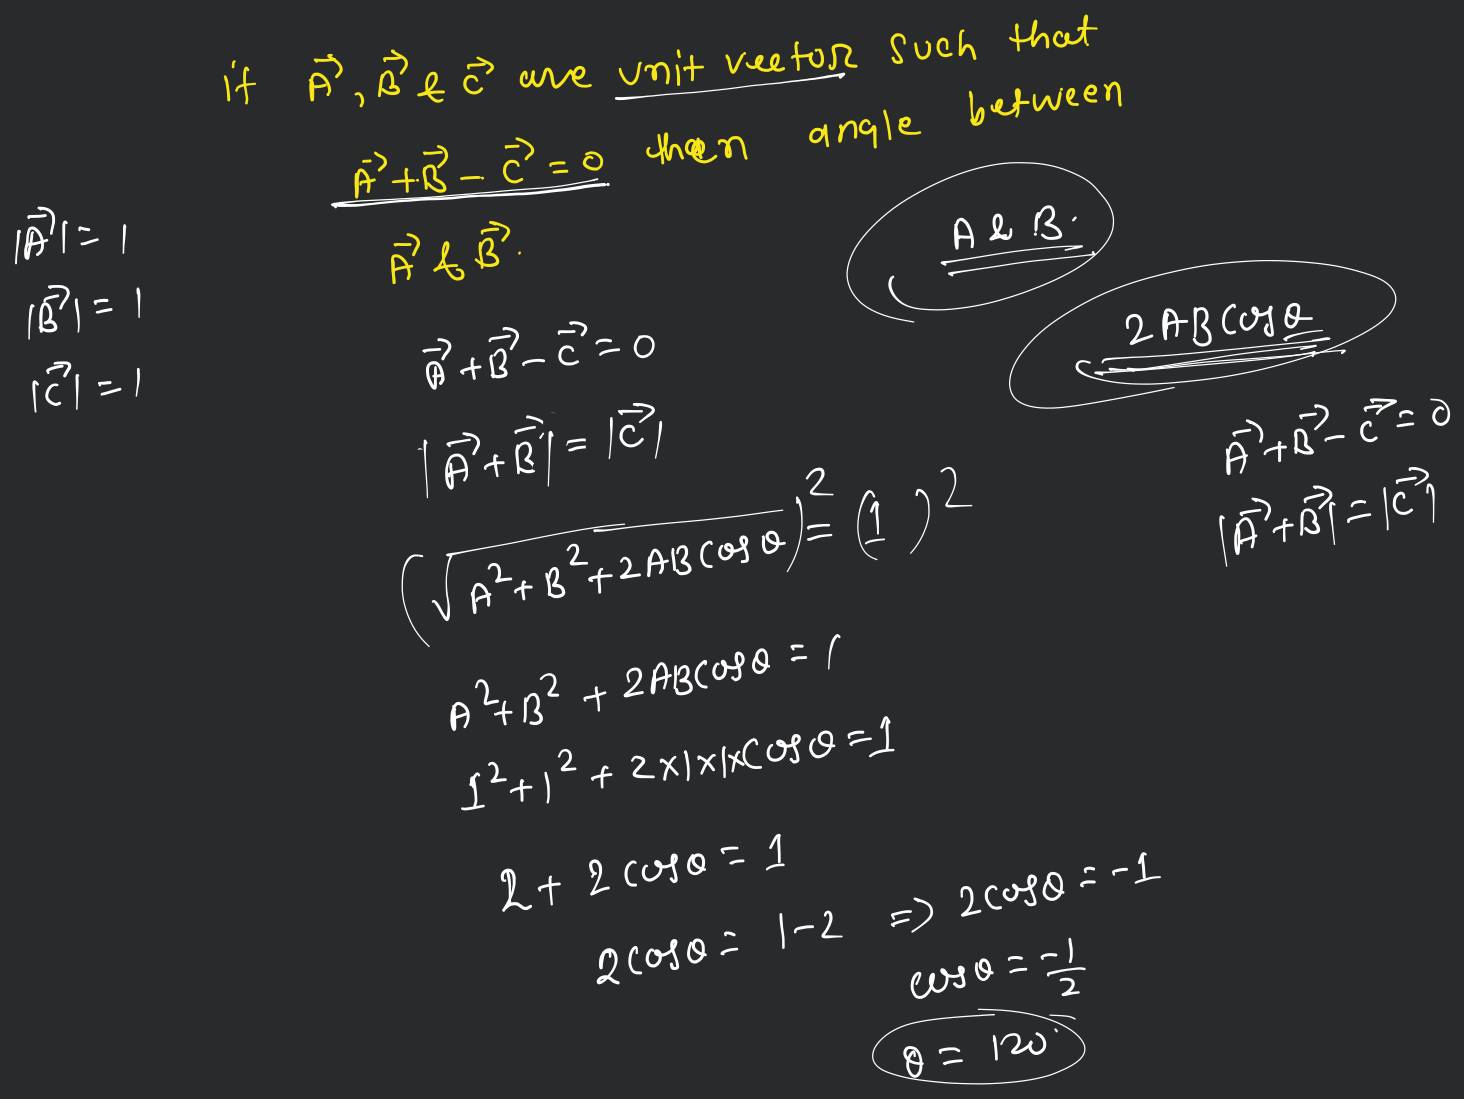 if A⃗, B⃗ & C⃗ are unit vector such that
A⃗ + B⃗ - C⃗ = 0 then angle between
A⃗ & B⃗.
A & B.
2ABCosθ
|A⃗| = 1
|B⃗| = 1
|C⃗| = 1
A⃗ + B⃗ - C⃗ = 0
|A⃗ + B⃗| = |C⃗|
(√A² + B² + 2ABCosθ)² = (1)²
A² + B² + 2ABCosθ = 1
1² + 1² + 2×1×1×Cosθ = 1
2 + 2cosθ = 1
2cosθ = 1-2 => 2cosθ = -1
cosθ = -1/2
θ = 120°
A⃗ + B⃗ - C⃗ = 0
|A⃗ + B⃗| = |C⃗|